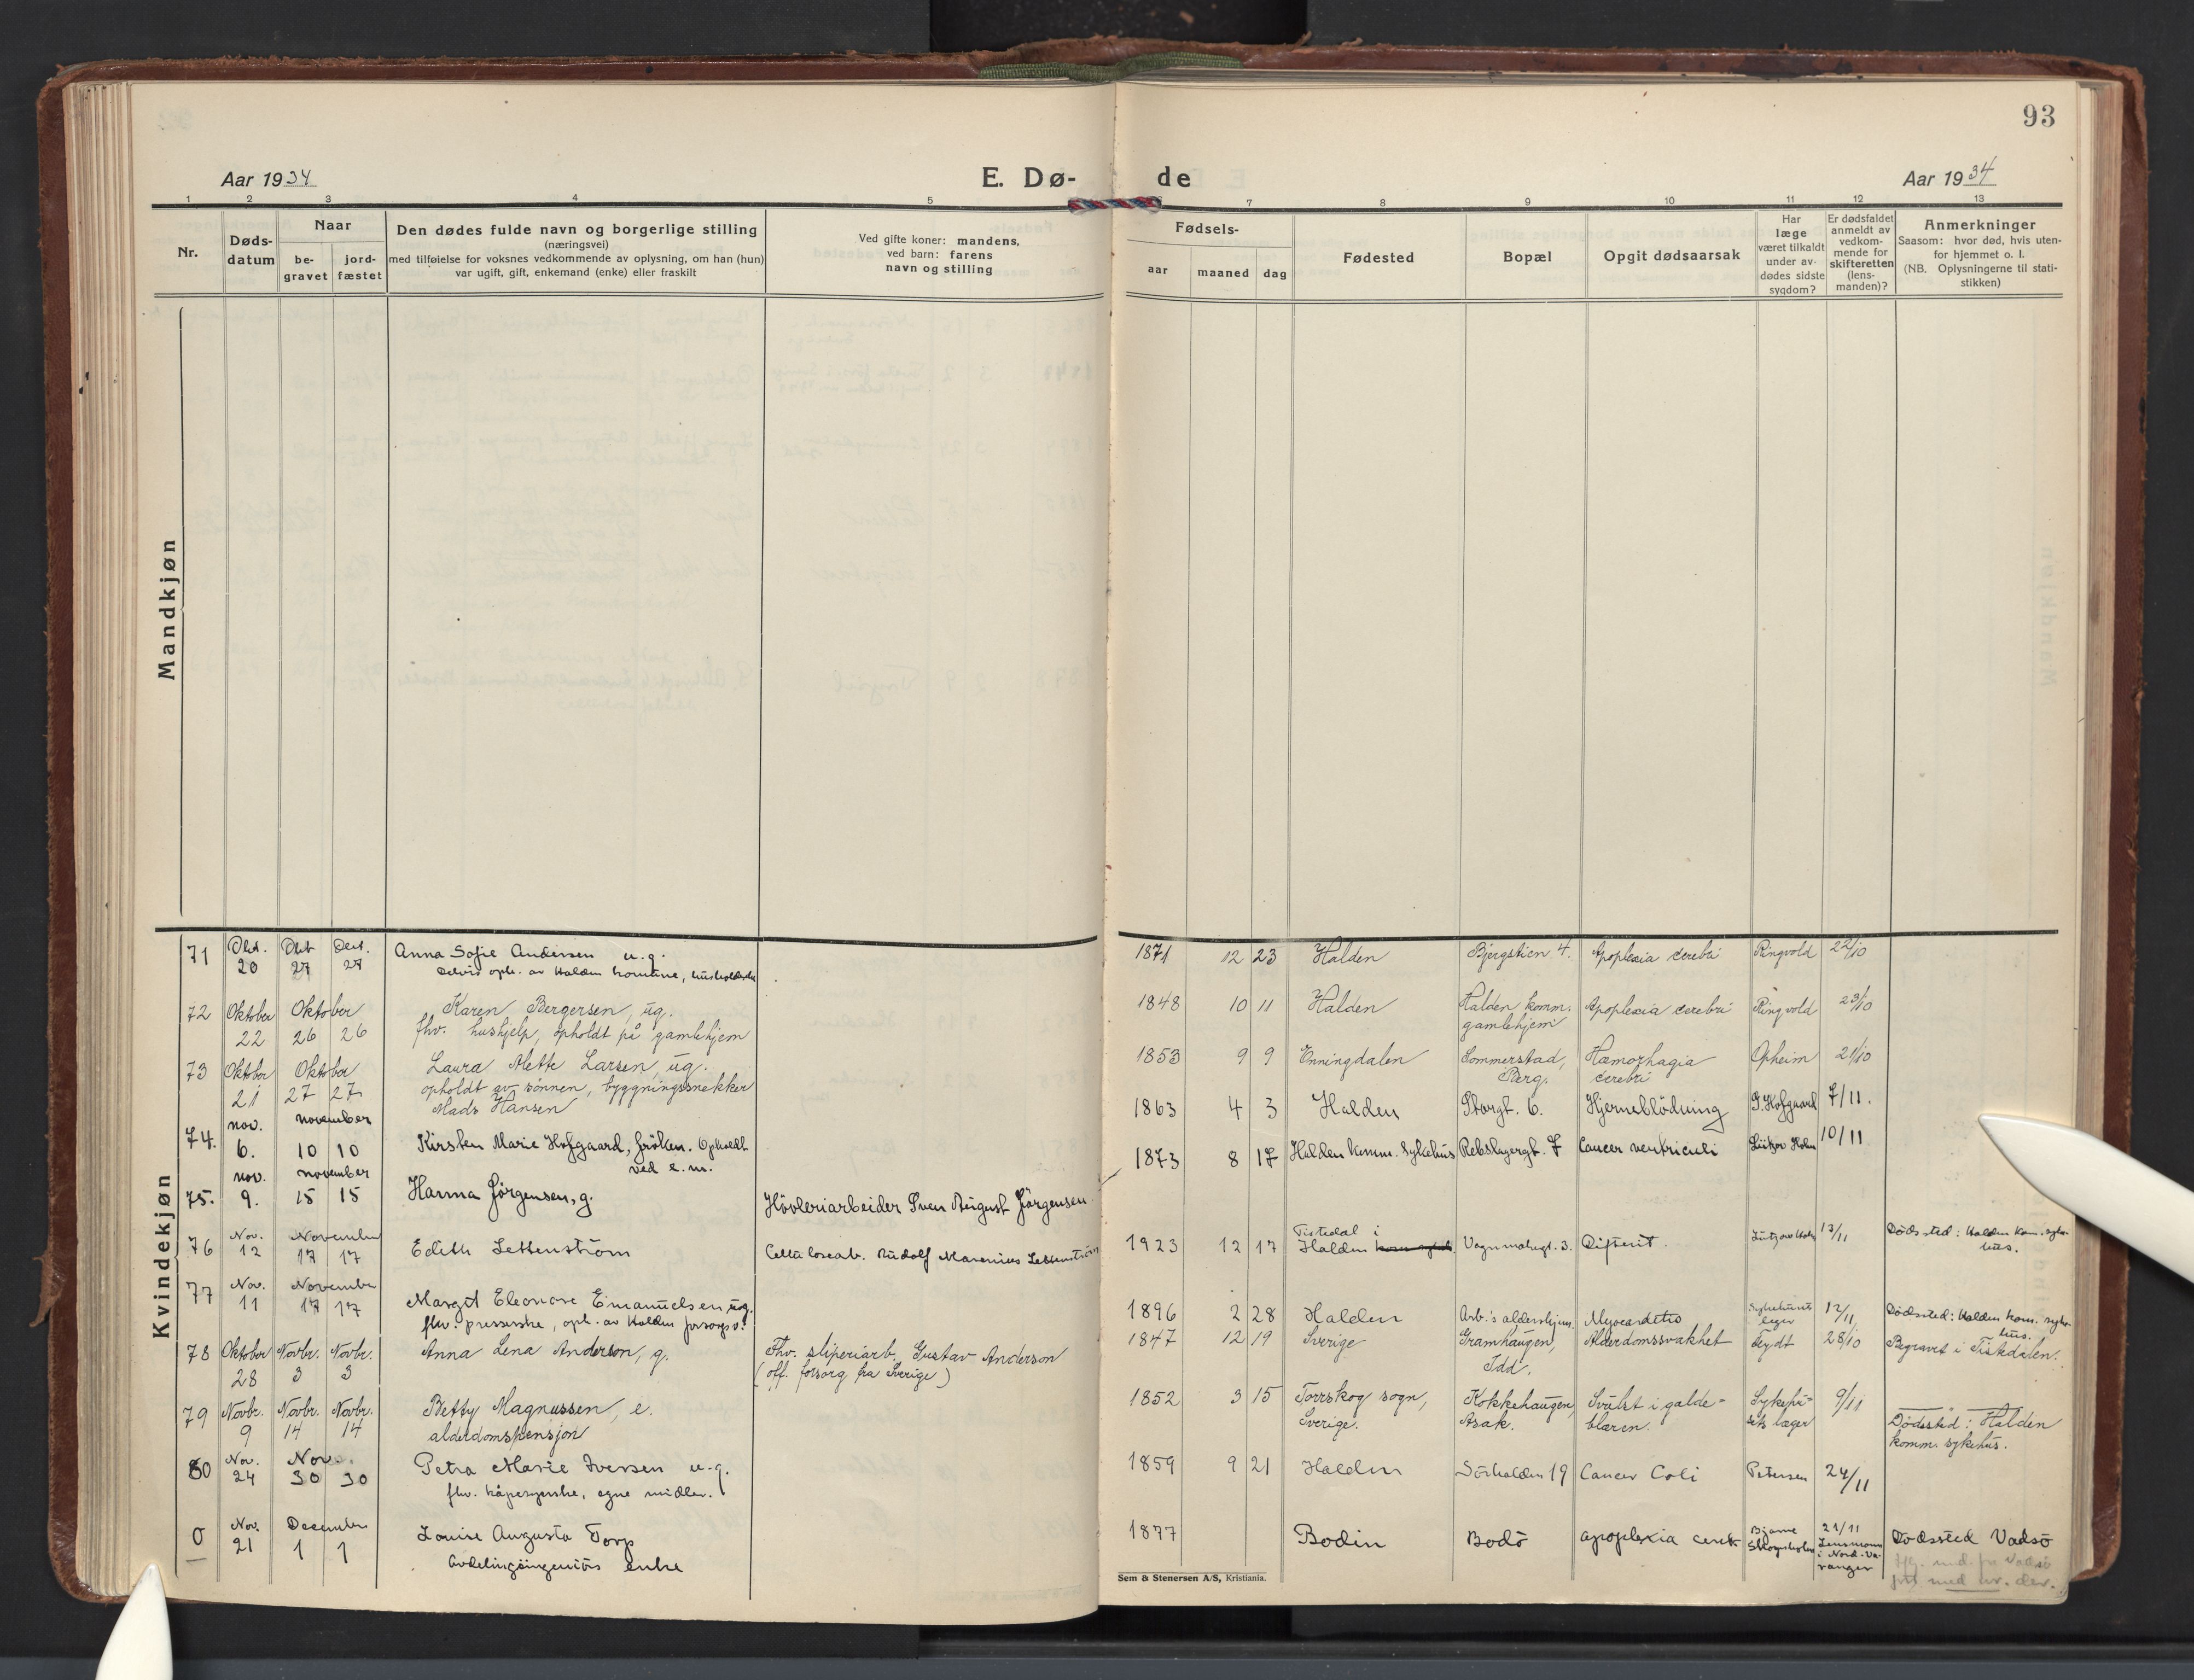 93
Aar 1934
E. Dø-
de
Aar 1934
1 2 3 4 5 7 8 9 10 11 12 13
Nr.
Døds-
datum
Naar
be-
gravet
jord-
fæstet
Den dødes fulde navn og borgerlige stilling
(næringsvei)
med tilføielse for voksnes vedkommende av oplysning, om han (hun)
var ugift, gift, enkemand (enke) eller fraskilt
Ved gifte koner: mandens,
ved barn: farens
navn og stilling
Fødsels-
aar
maaned
dag
Fødested
Bopæl
Opgit dødsaarsak
Har
læge
været tilkaldt
under av-
dødes sidste
sygdom?
Er dødsfaldet
anmeldt av
vedkom-
mende for
skifteretten
(lens-
manden)?
Anmerkninger
Saasom: hvor død, hvis uten-
for hjemmet o. l.
(NB. Oplysningerne til stati-
stikken)
Mandkjøn
Kvindekjøn
71 Okt. Okt Okt. Anna Sofie Andersen u.g. 1871 12 23 Halden Bjergstien 4. Apoplexia cerebri Ringvold 22/10
20 27 27 delvis oph. av Halden komune,
72 Oktober Oktober Karen Bergersen, ug. 1848 10 11 Halden Halden komm. Apoplexia cerebri Ringvold 23/10
22 26 26 fhv. hushjelp, opholdt på gamlehjem gamlehjem
73 Oktober Oktober Laura Mette Larsen, ug. 1853 9 9 Enningdalen Sommerstad, Hæmorhagia Opheim 21/10
21 27 27 opholdt av sønnen, byggningssnekker Berg. cerebri
Mads Hansen
74. nov. november 1863 4 3 Halden Storgt. 6. Hjerneblödning Hofgaard 7/11.
6. 10 10 Kirsten Marie Hofgaard, fröken. Opholdt
ved e.m.
75. nov. november 1873 8 17 Halden Komm. Sykehus Rebslagergt. 7 Cancer ventriculi Holm 10/11
9. 15 15 Hanna Jörgensen, g. Hövleriarbeider Sven August Jörgensen
76 Nov. November Tistedal i
12 17 17 Edith Lettenström Celluloseab. Rudolf Marenius Lettenström 1923 12 17 Halden 3. Difterit. 13/11 Dödssted: Halden kom. syke-
hus.
77 Nov. November
11 17 17 Margit Eleonore Emanuelsen, ug. 1896 2 28 Halden Arb.'s aldershjem Myocarditis Sykehusets 12/11 Dödssted: Halden kom. syke-
fhv. presserske, oph. av Halden forsorgsv. læger hus.
78 Oktober Novbr. Novbr. Anna Lena Anderson, g. Fhv. sliperiarb. Gustav Anderson 1847 12 19 Sverige Gramhaugen, Alderdomssvakhet Feydt 28/10 Begravet i Tistedalen.
28 3 3 (off. forsorg fra Sverige) Idd.
79 Novbr. Novbr. Novbr. Betty Magnussen, e. 1852 3 15 Torrskog sogn, Kokkehaugen, Svulst i galde= Sykehu= 9/11
9 14 14 alderdomspensjon Sverige. Asak. blæren. sets læger Dødssted: Halden
komm. sykehus.
80 Nov. Nov. Petra Marie Iversen u.g. 1859 9 21 Halden Sörhalden 19 Cancer Coli Petersen 24/11
24 30 30 fhv. kåpesyerske, egne midler.
0 Nov. December Louise Augusta Torp 1877 Bodin Bodö apoplexia cereb. Bjarne 21/11 Dödssted Vadsö
21 1 1 Avdelingsingeniörs enke Lensmann
i Nord-Va-
ranger
Sem & Stenersen A/S, Kristiania.